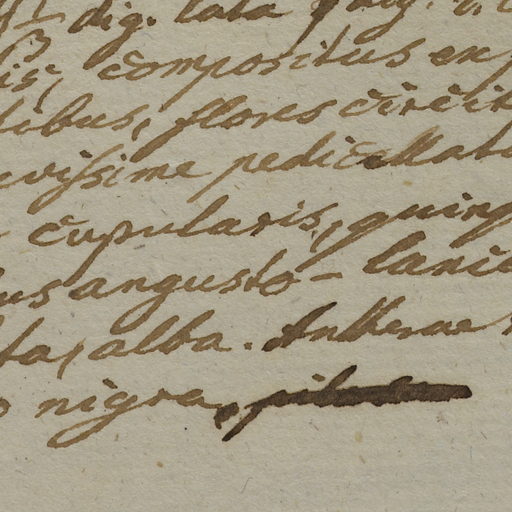 dig. lata
compositus ex
flores circi
vissime pedicellat
cupularis, quinq
us angusto-lance
ta, alba. Antherae
nigra,